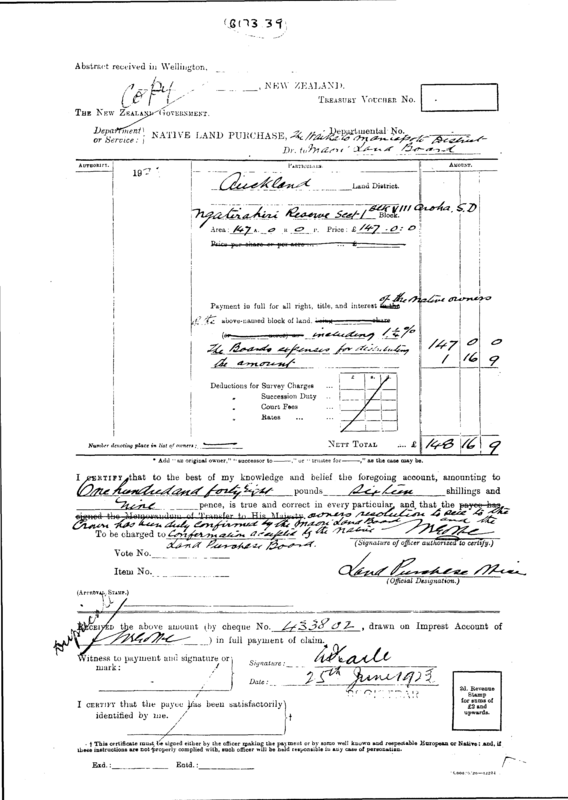 6173 39
Abstract received in Wellington,
Copy
, NEW ZEALAND.
TREASURY VOUCHER NO.
THE NEW ZEALAND GOVERNMENT.
Department or Service: NATIVE LAND PURCHASE, Departmental No.
The Waikato Maniapoto District
Dr. to Maori Land Board
AUTHORITY. 192 PARTICULARS. AMOUNT.
Auckland Land District.
Ngatirahiri Reserve Sect 1 Blk VIII Aroha S.D
Block.
Area: 147 A. 0 R. 0 P. Price: £ 147.0:0
Price per share or per acre ... ... £
of the native owners
Payment in full for all right, title, and interest in the
of the above-named block of land, being share
including 1¼%
The Boards expenses for distributing
the amount
147 0 0
1 16 9
£ s. d.
Deductions for Survey Charges ...
" Succession Duty ..
" Court Fees ...
" Rates ... ...
Number denoting place in list of owners:
NETT TOTAL .... £ 148 16 9
* Add "as original owner," "successor to ——," or "trustee for ——," as the case may be.
I CERTIFY that to the best of my knowledge and belief the foregoing account, amounting to
One hundred and forty eight pounds Sixteen shillings and
nine pence, is true and correct in every particular, and that the payee has
signed the Memorandum of Transfer to His Majesty owners resolution to sell to the
Crown has been duly confirmed by the Maori Land Board and the
To be charged to confirmation accepted by the native
Land Purchase Board.
(Signature of officer authorized to certify.)
Vote No.
Item No.
Land Purchase
(Official Designation.)
(APPROVAL STAMP.)
Duplicate
RECEIVED the above amount (by cheque No. 433802, drawn on Imprest Account of
) in full payment of claim.
Witness to payment and signature or mark:
Signature:
Date: 25th June 1923
I CERTIFY that the payee has been satisfactorily
identified by me.
†
2d. Revenue
Stamp
for sums of
£2 and
upwards.
† This certificate must be signed either by the officer making the payment or by some well known and respectable European or Native: and, if
these instructions are not properly complied with, such officer will be held responsible in any case of personation.
Exd.: Entd.: